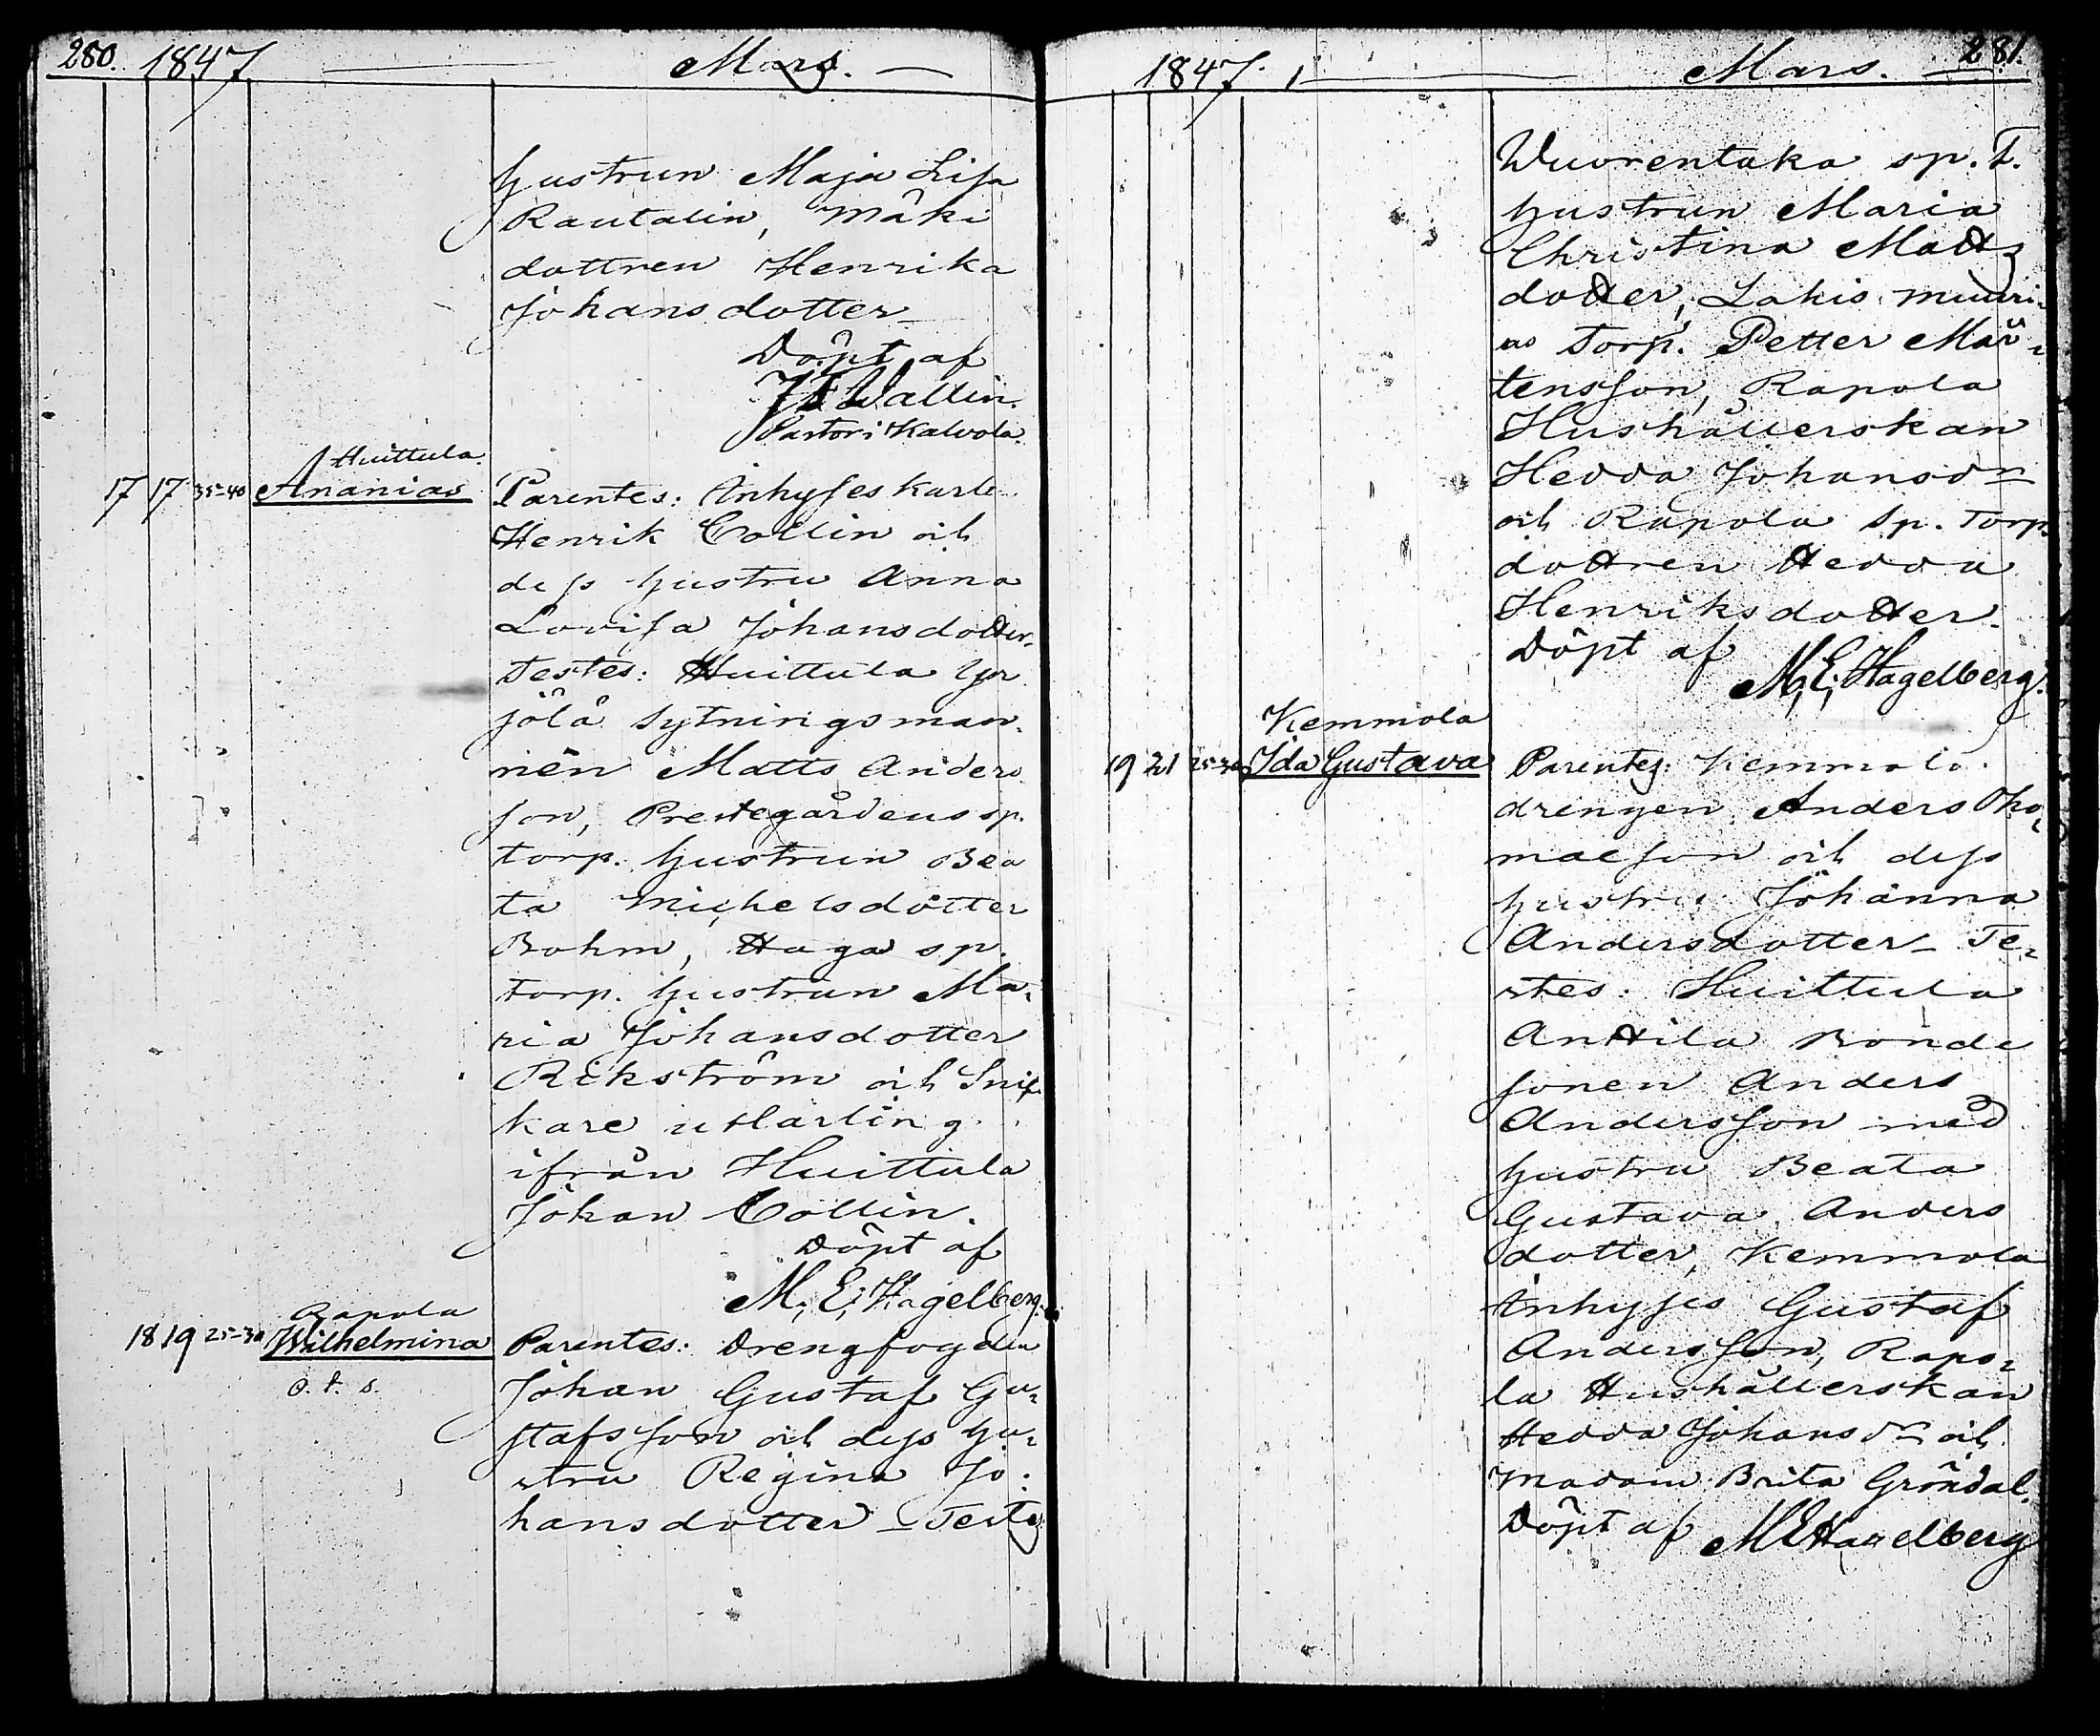 280. 1847 Mars.
hustrun Maja Lisa
Rautalin, Mäki
dottren Henrika
Johansdotter
Döpt af
J F Wallin.
Pastor i Kalvola.
Huittula.
17 17 35-40 Ananias Parentes: Inhyses Karle
Henrik Collin och
dess hustru Anna
Lovisa Johansdotter.
Testes: Huittula Yr
jölä Sytningsman
nen Matts Anders
son, Prestegårdens sp.
torp. hustrun Bea
ta Michelsdotter
Bohm, Haga sp.
torp. hustrun Ma-
ria Johansdotter
Rikström och Snic
kare utlärling
ifrån Huittula
Johan Collin.
Döpt af
M. E. Hagelberg.
Rapola
18 19 25-30 Wilhelmina Parentes: Drengfogden
Johan Gustaf Gu-
stafsson och dess hu-
stru Regina Jo-
hansdotter - Testes
281.
1847. Mars.
Wuorentaka sp. T.
hustrun Maria
Christina Matts
dotter, Lakis muuri-
as Torp. Petter Mår-
tensson, Rapola
Hushållerskan
Hedda Johansdr
och Rapola Sp. Torp.
dottren Hedda
Henriksdotter.
Döpt af
M. E. Hagelberg.
Kemmola
19 21 25-30 Ida Gustava Parentes: Kemmola
drengen Anders Tho-
maesson och dess
hustru Johanna
Andersdotter - Te-
stes: Huittula
Anttila Bonde
sonen Anders
Andersson med
hustru Beata
Gustava Anders
dotter, Kemmola
Inhyses Gustaf
Andersson, Rapo-
la Hushållerskan
Hedda Johansdr och
Madam Brita Gröndal.
Döpt af M E Hagelberg